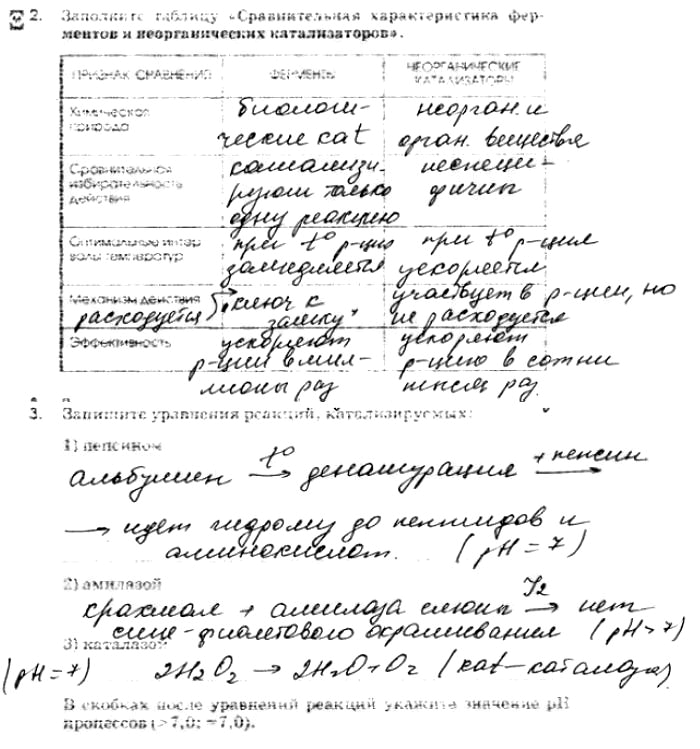 2. Заполните таблицу «Сравнительная характеристика фер-
ментов и неорганических катализаторов».
ПРИЗНАК СРАВНЕНИЯ ФЕРМЕНТЫ НЕОРГАНИЧЕСКИЕ КАТАЛИЗАТОРЫ
Химическая природа
биологи-
ческие cat
неорган. и
орган. вещества
Сравнительная избирательность действия
катализи-
руют только
одну реакцию
неспеци-
фичны
Оптимальные интервалы температур
при t° р-ция
замедляется
при t° р-ция
ускоряется
Механизм действия
расходуется
"ключ к
замку"
участвует в р-ции, но
не расходуется
Эффективность
ускоряют
р-ции в мил-
лионы раз
ускоряют
р-цию в сотни
тысяч раз.
3. Запишите уравнения реакций, катализируемых:
1) пепсином
альбумин t° → денатурация + пепсин →
→ идет гидролиз до пептидов и
аминокислот. (pH = 7)
2) амилазой
крахмал + амилаза слюны I2 → нет
сине-фиолетового окрашивания (pH > 7)
3) каталазой
(pH = 7) 2H2O2 → 2H2O + O2 (kat – каталаза)
В скобках после уравнений реакций укажите значение pH
процессов (>7,0; =7,0).